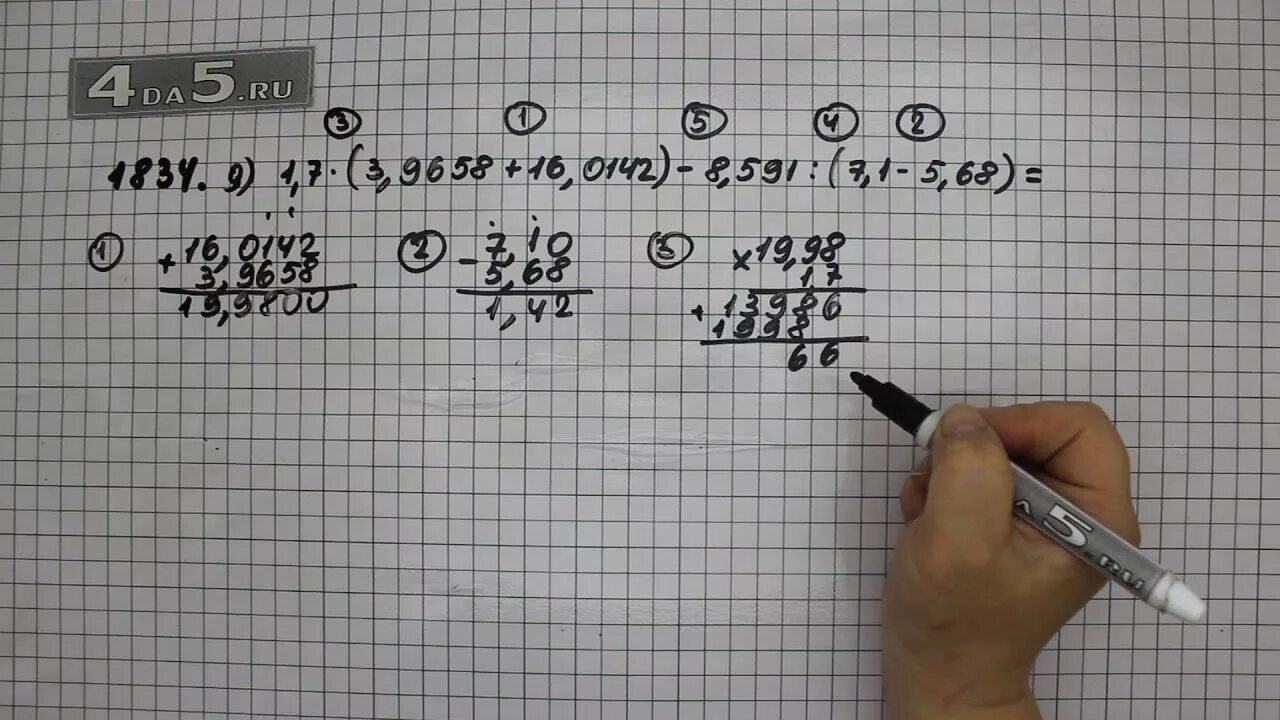 4DA5.RU
③ ① ⑤ ④ ②
1834. д) 1,7 · (3,9658 + 16,0142) - 8,591 : (7,1 - 5,68) =
①
+ 16,0142
3,9658
19,9800
②
- 7,10
5,68
1,42
③
× 19,98
1,7
+ 13986
1998
66
А 5.RU